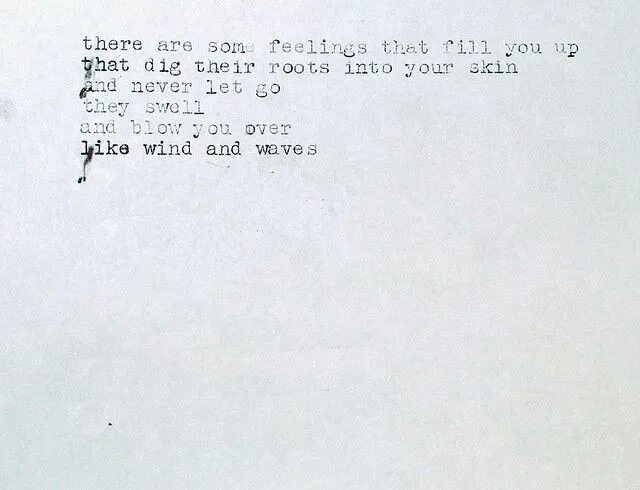 there are some feelings that fill you up
that dig their roots into your skin
and never let go
they swell
and blow you over
like wind and waves